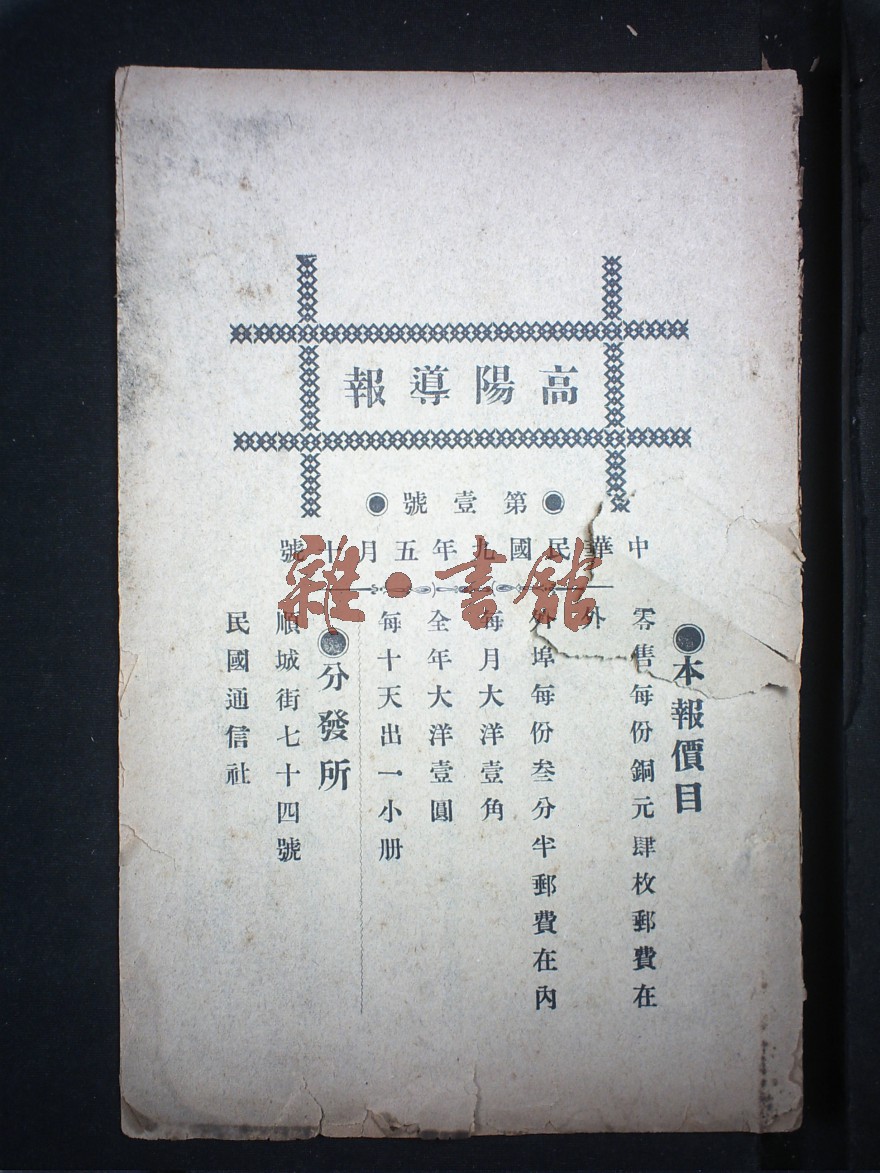 高陽導報
●第壹號●
中華民國九年五月十號
●本報價目
零售每份銅元肆枚郵費在
外
外埠每份叁分半郵費在內
每月大洋壹角
全年大洋壹圓
每十天出一小册
●分發所
順城街七十四號
民國通信社
雜·書館